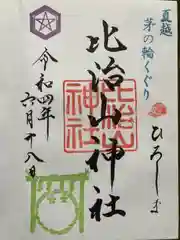 夏越
茅の輪くぐり
ひろしま
比治山神社
比治山神社
令和四年
六月十八日